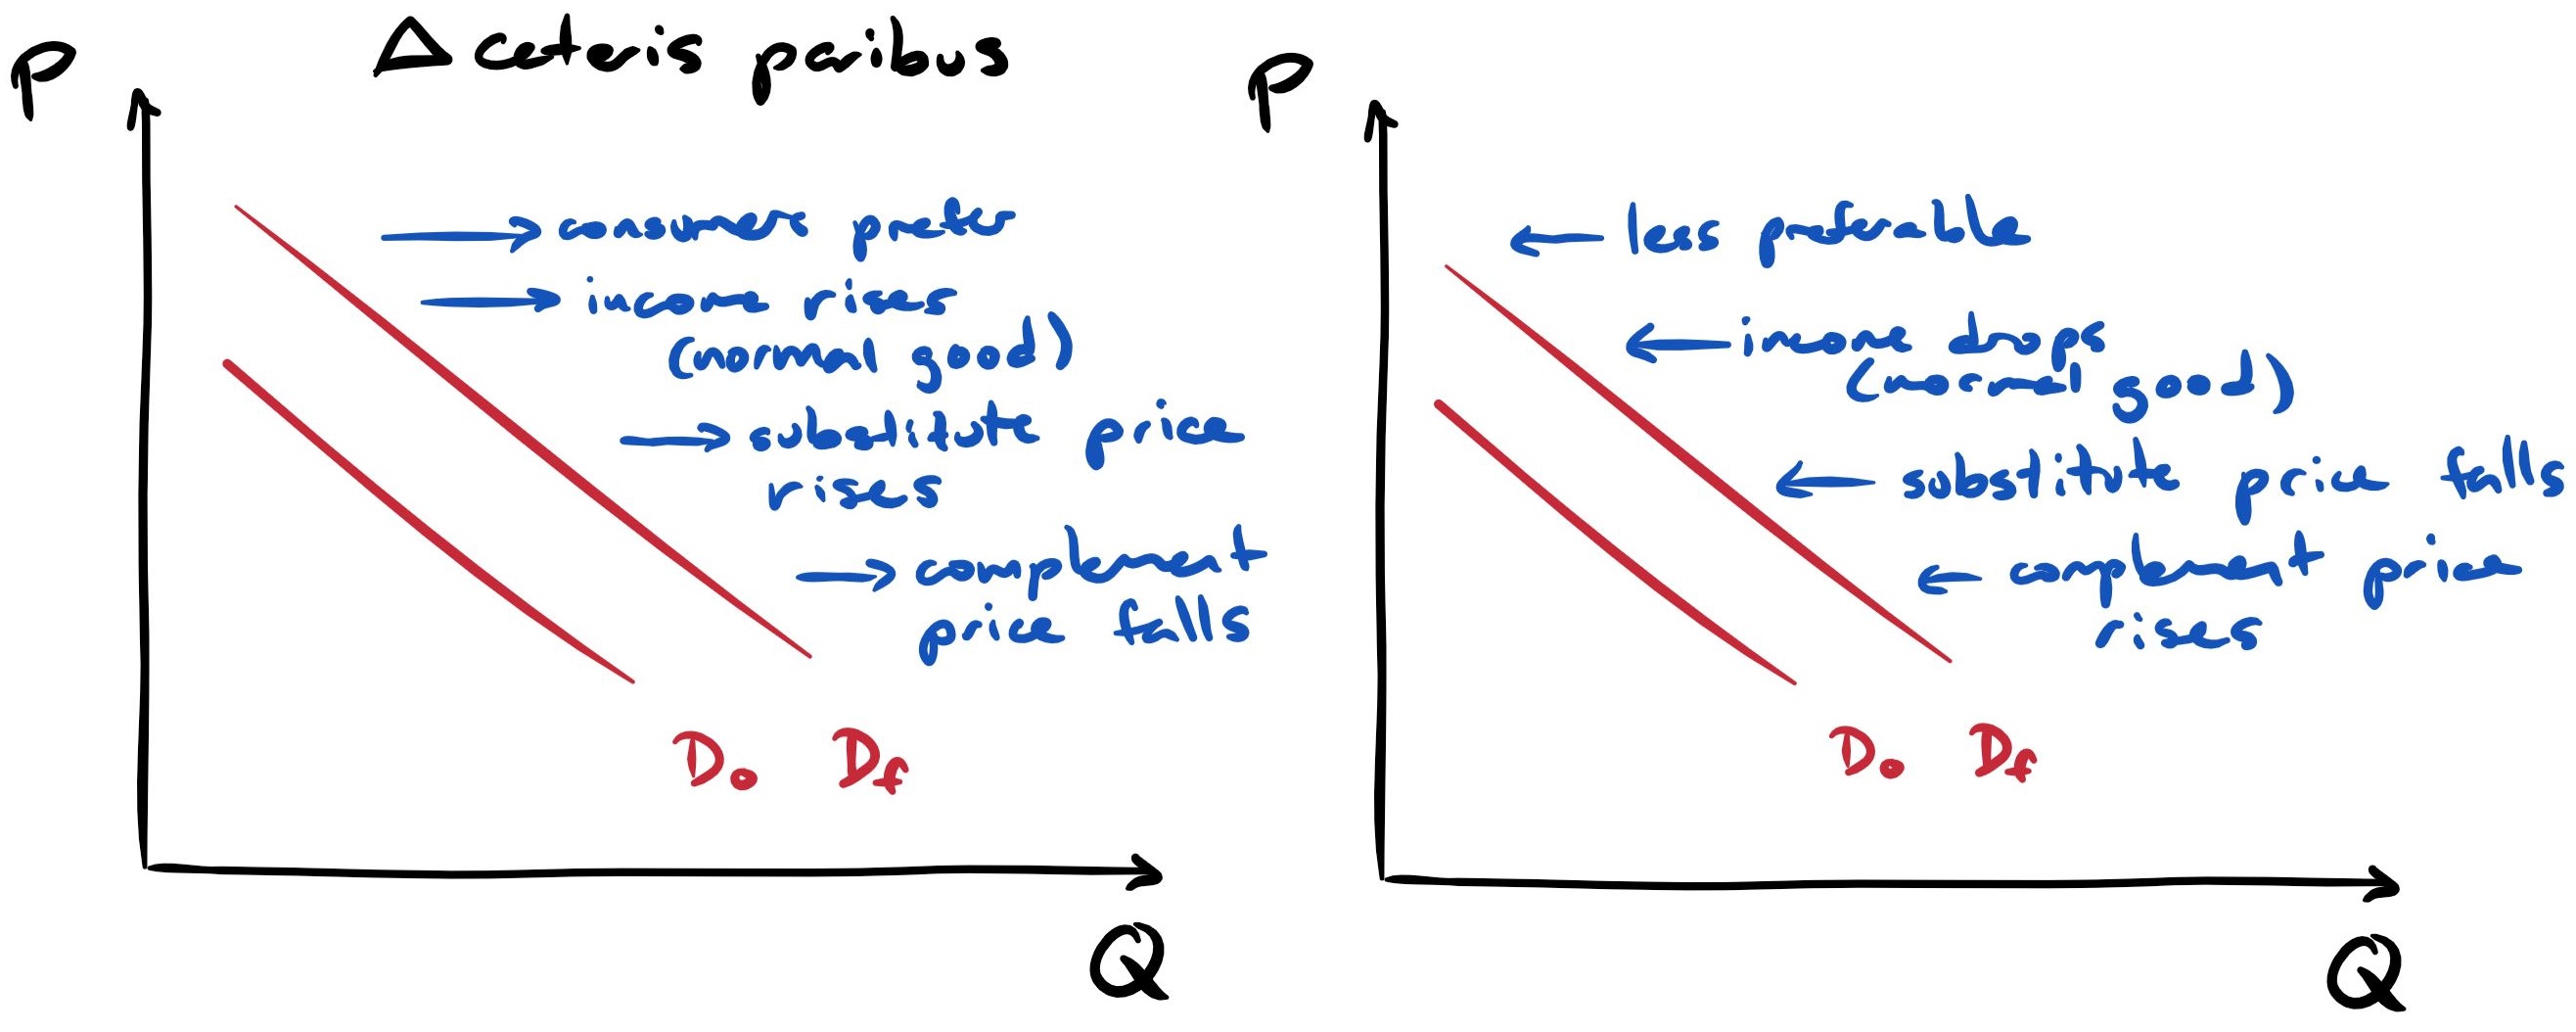 P
Δ ceteris paribus
→ consumers prefer
→ income rises
(normal good)
→ substitute price
rises
→ complement
price falls
D₀ D_f
Q
P
← less preferable
← income drops
(normal good)
← substitute price falls
← complement price
rises
D₀ D_f
Q